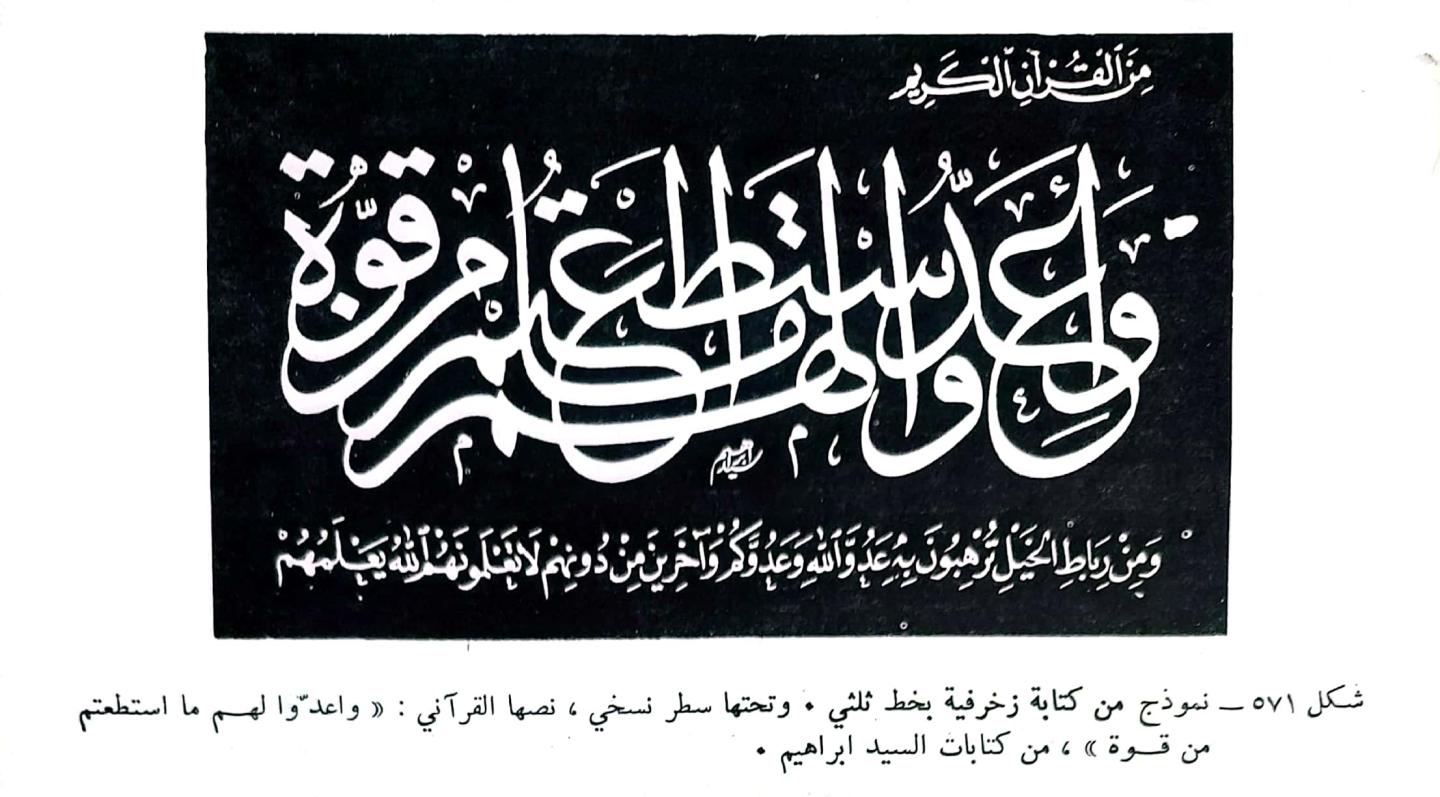 مِنَ ٱلْقُرْآنِ ٱلْكَرِيمِ
وَأَعِدُّوا لَهُم مَّا ٱسْتَطَعْتُم مِّن قُوَّةٍ
سيد ابراهيم
وَمِنْ رِبَاطِ الْخَيْلِ تُرْهِبُونَ بِهِ عَدُوَّ ٱللهِ وَعَدُوَّكُمْ وَآخَرِينَ مِنْ دُونِهِمْ لَا تَعْلَمُونَهُمُ ٱللهُ يَعْلَمُهُمْ
شكل ٥٧١ ــ نموذج من كتابة زخرفية بخط ثلثي . وتحتها سطر نسخي ، نصها القرآني : « واعدّوا لهــم ما استطعتم
من قــوة » ، من كتابات السيد ابراهيم .